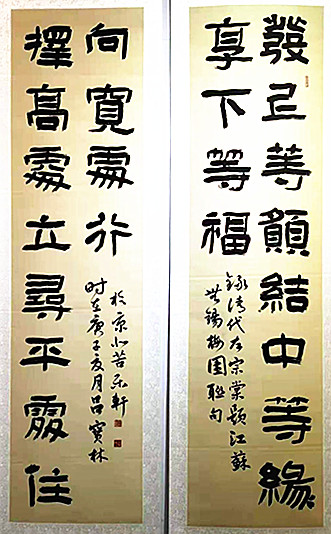 發上等願結中等緣
享下等福
錄清代左宗棠題江蘇
無錫梅園聯句
擇高處立尋平處住
向寬處行
於京苦乐軒
时在庚子夏月吕寶林